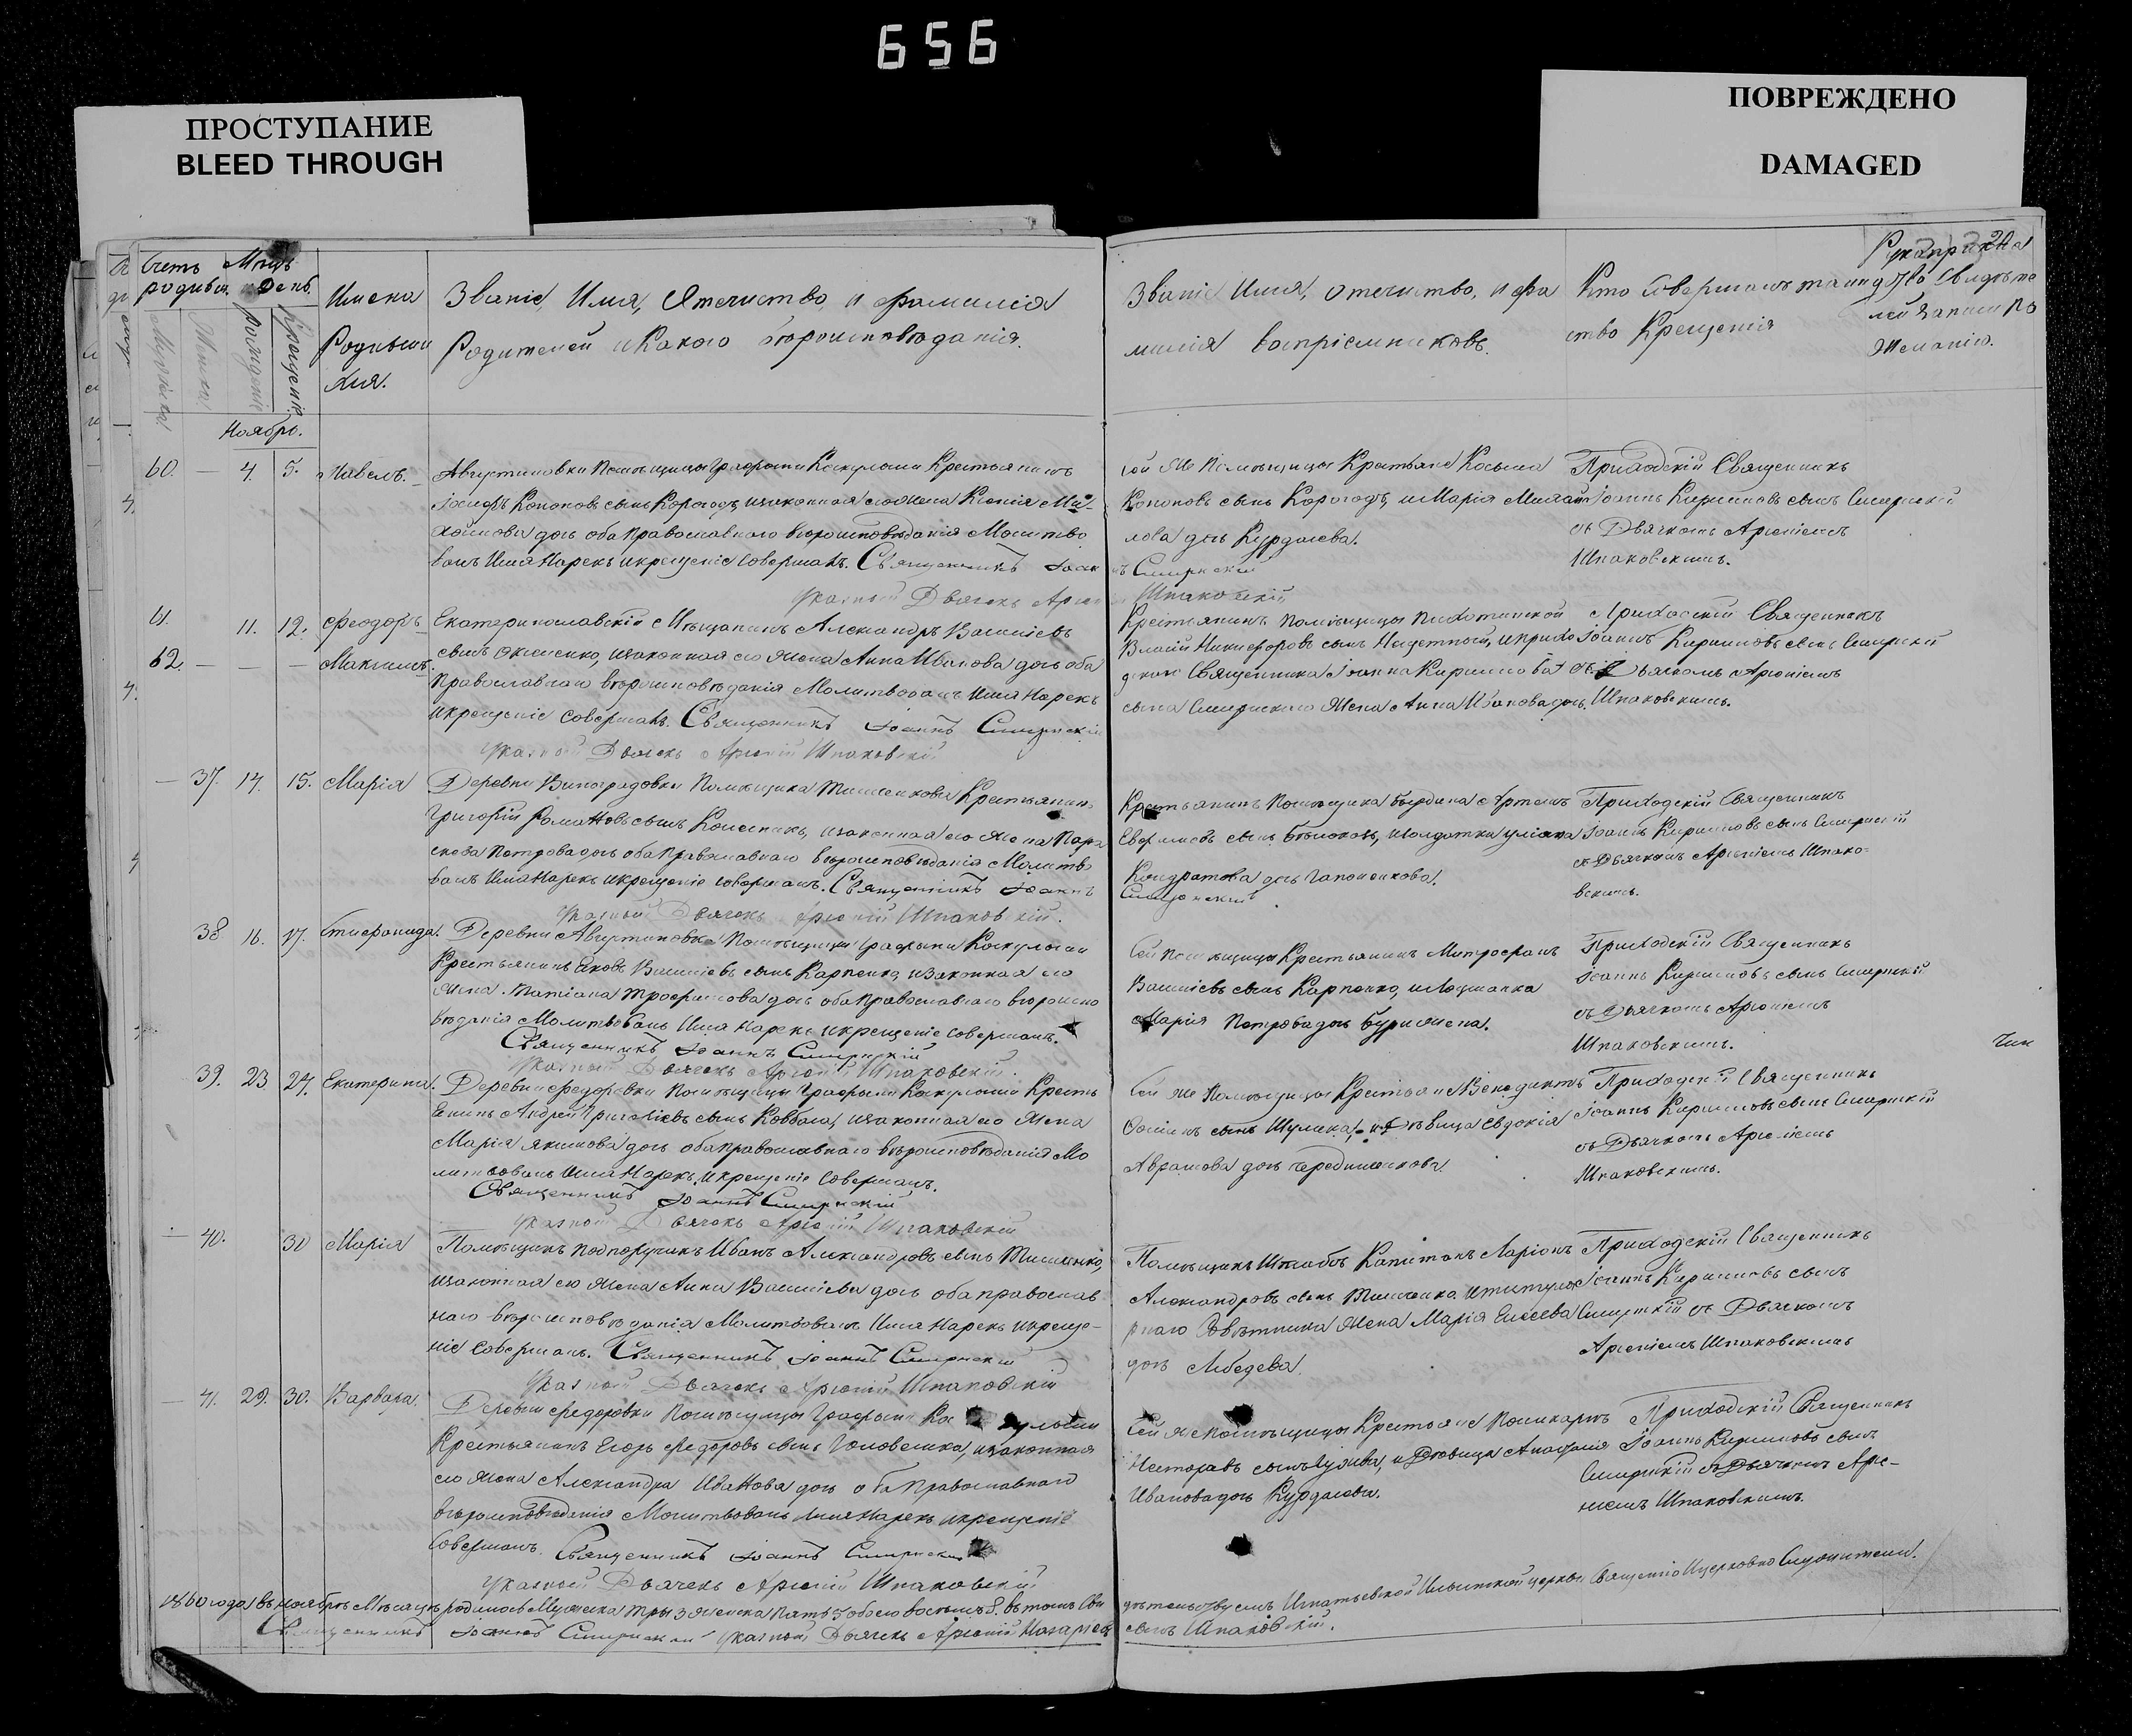 656
ПРОСТУПАНИЕ
BLEED THROUGH
ПОВРЕЖДЕНО
DAMAGED
Счетъ родивш.
Мѣсяцъ и День
Мужеска
Женска
Рожденія
Крещенія
Имена Родившихся.
Званіе, Имя, Отечество, и фамилія
Родителей и Какого вѣроисповѣданія.
Званіе Имя, Отечество, и фа
милія воспріемниковъ.
Кто Совершалъ таин
ство Крещенія
Рукоприклад
ство Свидѣте
лей записи по
Желанію.
Ноябрь.
60. — 4. 5. Павелъ.
Августиновки Помѣщицы Графини Крестьянинъ
Іосифъ Кононовъ сынъ Корогодъ, и законная его Жена Ксенія Ми-
хайлова дочь оба Православнаго вѣроисповѣданія Молитво
валъ Имя Нарекъ и крещеніе совершалъ. Священникъ Іоан
нъ Смирнскій
Указной Дьячекъ Арсеній Шпаковскій
сей Же Помѣщицы Крестьяне Косьма
Кононовъ сынъ Корогодъ, и Марія Михай
лова дочь Курдаева.
Приходскій Священникъ
Іоаннъ Кириловъ сынъ Смирнскій
съ Дьячкомъ Арсеніемъ
Шпаковскимъ.
61. 11. 12. Феодоръ
62. — — — Максимъ.
Екатеринославскій Мѣщанинъ Александръ Василіевъ
сынъ, и законная его Жена Анна Иванова дочь оба
Православнаго вѣроисповѣданія Молитвовалъ Имя Нарекъ
и крещеніе совершалъ. Священникъ Іоаннъ Смирнскій
Указной Дьячекъ Арсеній Шпаковскій
Крестьянинъ Помѣщицы
Власій Никифоровъ сынъ, и прихо
дскаго Священника Іоанна Кирилова
сына Смирнскаго Жена Анна Иванова дочь.
Приходскій Священникъ
Іоаннъ Кириловъ сынъ Смирнскій
съ Дьячкомъ Арсеніемъ
Шпаковскимъ.
— 37. 14. 15. Марія
Деревни Виноградовки Помѣщика Тимченкова Крестьянинъ
Григорій Романовъ сынъ Колесникъ, и законная его Жена Пара
скева Петрова дочь оба Православнаго вѣроисповѣданія Молитво
валъ Имя Нарекъ и крещеніе совершалъ. Священникъ Іоаннъ
Смирнскій
Указной Дьячекъ Арсеній Шпаковскій.
Крестьянинъ Помѣщика Артемъ
Евфимовъ сынъ, и солдатка Уліяна
Кондратова дочь Гапоненкова.
Приходскій Священникъ
Іоаннъ Кириловъ сынъ Смирнскій
съ Дьячкомъ Арсеніемъ Шпако-
вскимъ.
38 16. 17. Стефанида.
Деревни Августиновки Помѣщицы Графини
Крестьянинъ Яковъ Василіевъ сынъ Карпенко, и законная его
Жена Татіана Трофимова дочь оба Православнаго вѣроиспо
вѣданія Молитвовалъ Имя Нарекъ и крещеніе совершалъ.
Священникъ Іоаннъ Смирнскій
Указной Дьячекъ Арсеній Шпаковскій.
Сей Помѣщицы Крестьянинъ Митрофанъ
Василіевъ сынъ Карпенко, и
Марія Петрова дочь
Приходскій Священникъ
Іоаннъ Кириловъ сынъ Смирнскій
съ Дьячкомъ Арсеніемъ
Шпаковскимъ.
39. 23 24. Екатерина.
Деревни Федоровки Помѣщицы Графини Кресть
янинъ Андрей Григоріевъ сынъ, и законная его Жена
Марія Якимова дочь оба Православнаго вѣроисповѣданія Мо
литвовалъ Имя Нарекъ, и крещеніе Совершалъ.
Священникъ Іоаннъ Смирнскій
Указной Дьячекъ Арсеній Шпаковскій
Сей же Помѣщицы Крестьян Венедиктъ
Осіинъ сынъ Шулика, и Дѣвица Евдокія
Аврамова дочь Чередниченкова
Приходскій Священникъ
Іоаннъ Кириловъ сынъ Смирнскій
съ Дьячкомъ Арсеніемъ
Шпаковскимъ.
— 40. 30 Марія
Помѣщикъ Подпоручикъ Иванъ Александровъ сынъ Тимченко,
и законная его Жена Анна Василіева дочь оба православ
наго вѣроисповѣданія Молитвовалъ Имя Нарекъ и креще-
ніе совершалъ. Священникъ Іоаннъ Смирнскій
Указной Дьячекъ Арсеній Шпаковскій
Помѣщикъ Штабсъ Капитанъ Ларіонъ
Александровъ сынъ Тимченко и титуля
рнаго Совѣтника Жена Марія Елисеева
дочь Лебедева.
Приходскій Священникъ
Іоаннъ Кириловъ сынъ
Смирнскій съ Дьячкомъ
Арсеніемъ Шпаковскимъ
— 41. 29. 30. Варвара.
Деревни Федоровки Помѣщицы Графини
Крестьянинъ Егоръ Федоровъ сынъ Головешка, и законная
его Жена Александра Иванова дочь оба Православнаго
вѣроисповѣданія Молитвовалъ Имя Нарекъ и крещеніе
Совершалъ. Священникъ Іоаннъ Смирнскій
Указной Дьячекъ Арсеній Шпаковскій
Сей же Помѣщицы Крестьяне Поликарпъ
Несторовъ сынъ, и Дѣвица Анастасія
Иванова дочь Курдаева.
Приходскій Священникъ
Іоаннъ Кириловъ сынъ
Смирнскій съ Дьячкомъ Арсе-
ніемъ Шпаковскимъ.
1860 года въ ноябрѣ Мѣсяцѣ родилось Мужеска три 3 Женска Пять 5 обоего восемь 8. въ томъ Сви
дѣтельствуемъ Игнатьевской Ильинской церкви Священно и церковно Служители.
Священникъ Іоаннъ Смирнскій Указной Дьячекъ Арсеній Назаріевъ
сынъ Шпаковскій.